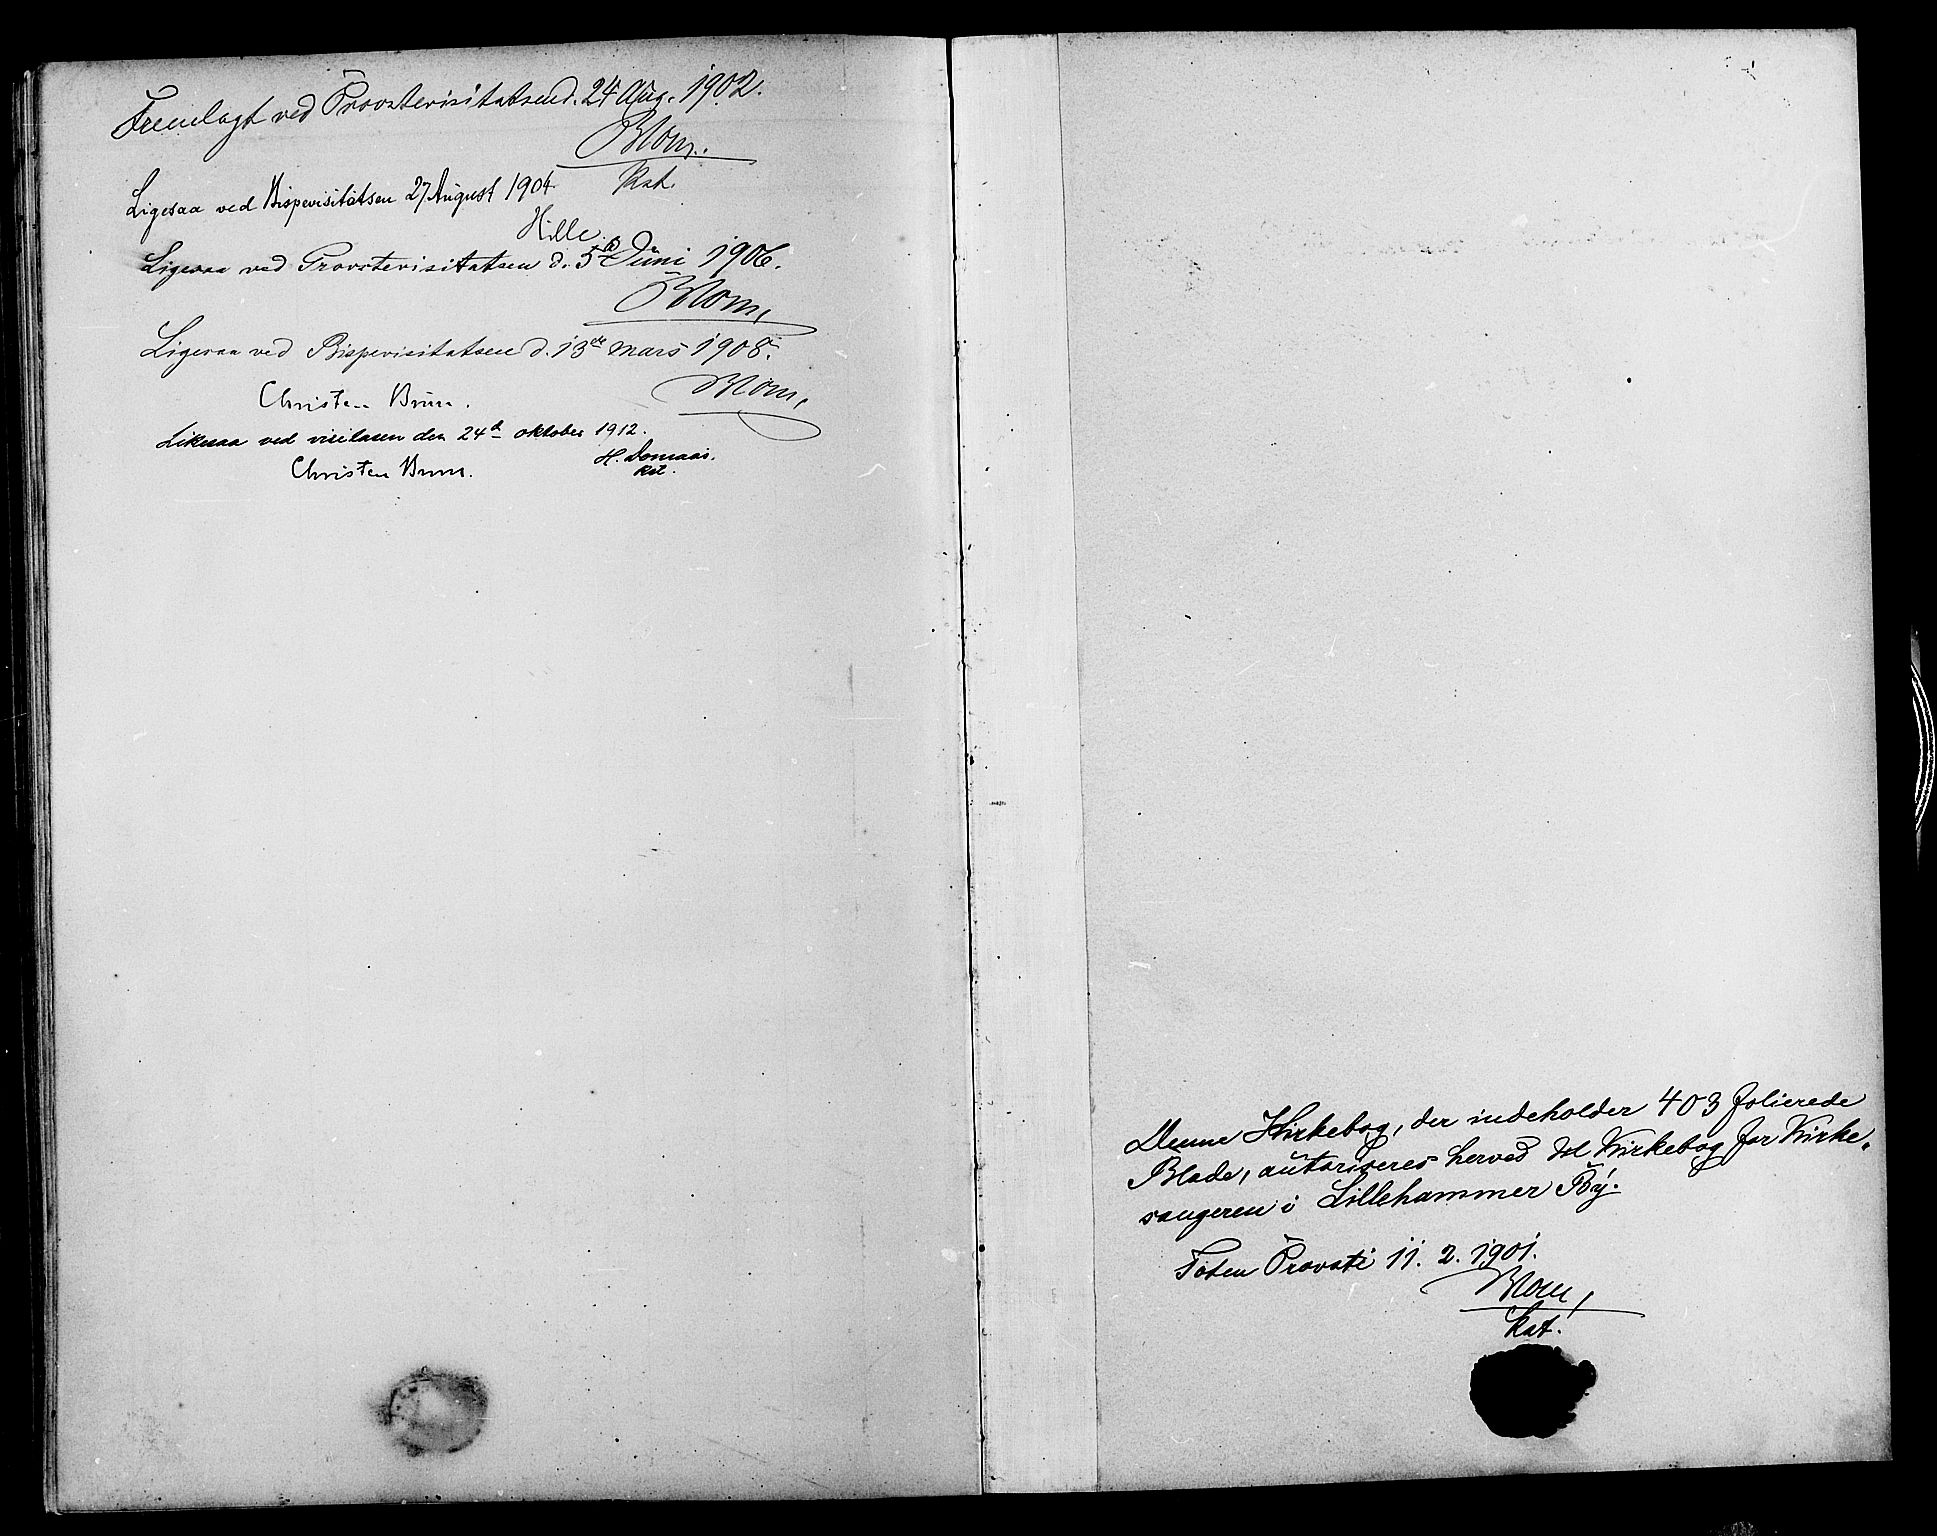 Fremlagt ved Provstevisitatsen d. 24 Aug. 1902.
Blom.
Kst.
Ligesaa ved Bispevisitatsen 27 August 1904.
Hille.
Ligesaa ved Provstevisitatsen d. 5te Juni 1906.
Blom,
Ligesaa ved Bispevisitatsen d. 13de mars 1908.
Blom,
Christen Brun.
Likesaa ved visitasen den 24de oktober 1912.
H. Domaas.
kst.
Christen Brun.
Denne Kirkebog, der indeholder 403 folierede
Blade, autoriseres herved til Kirkebog for Kirke-
sangeren i Lillehammer By.
Toten Provsti 11. 2. 1901.
Blom,
Kst.